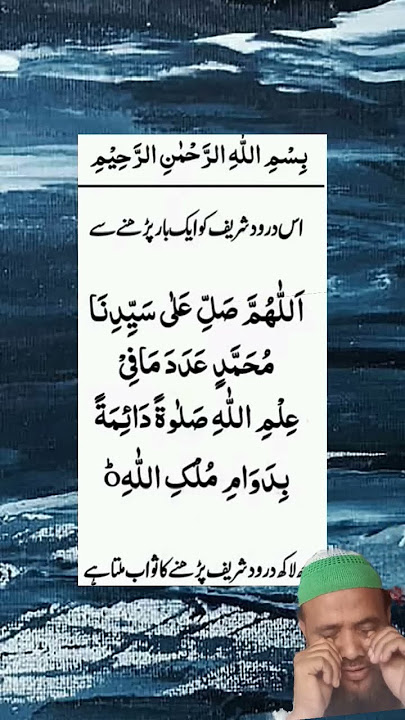 بِسْمِ اللهِ الرَّحْمٰنِ الرَّحِيْمِ
اس درود شریف کو ایک بار پڑھنے سے
اَللّٰهُمَّ صَلِّ عَلٰى سَيِّدِنَا
مُحَمَّدٍ عَدَدَ مَا فِيْ
عِلْمِ اللّٰهِ صَلٰوةً دَائِمَةً
بِدَوَامِ مُلْكِ اللّٰهِ ط
لاکھ درود شریف پڑھنے کا ثواب ملتا ہے